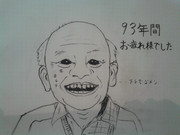 93年間
お疲れ様でした